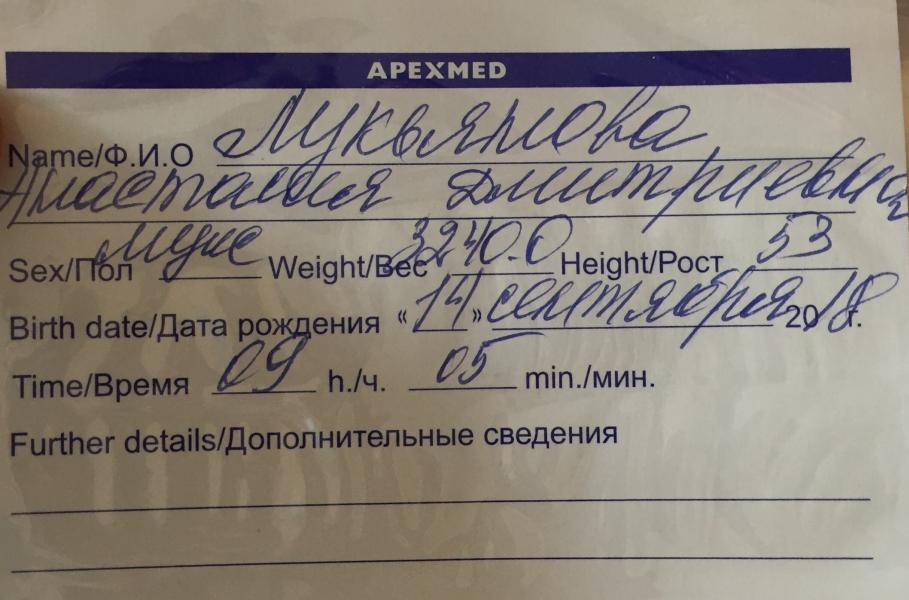 APEXMED
Name/Ф.И.О Лукьянова
Анастасия Дмитриевна
Sex/Пол муж Weight/Вес 3240.0 Height/Рост 53
Birth date/Дата рождения «14» сентября 2018 г.
Time/Время 09 h./ч. 05 min./мин.
Further details/Дополнительные сведения